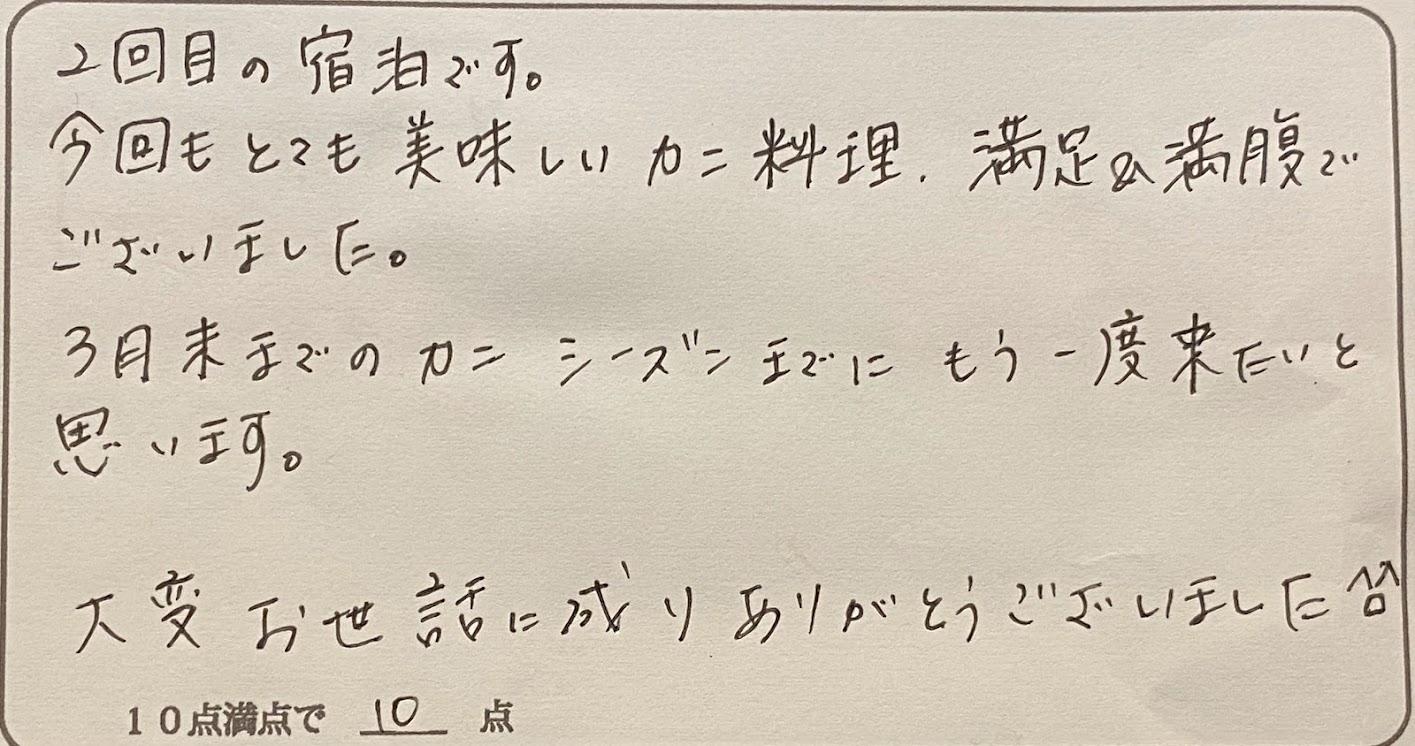 2回目の宿泊です。
今回もとても美味しいカニ料理、満足&満腹で
ございました。
3月末までのカニシーズンまでにもう一度来たいと
思います。
大変お世話に成りありがとうございました
10点満点で 10 点